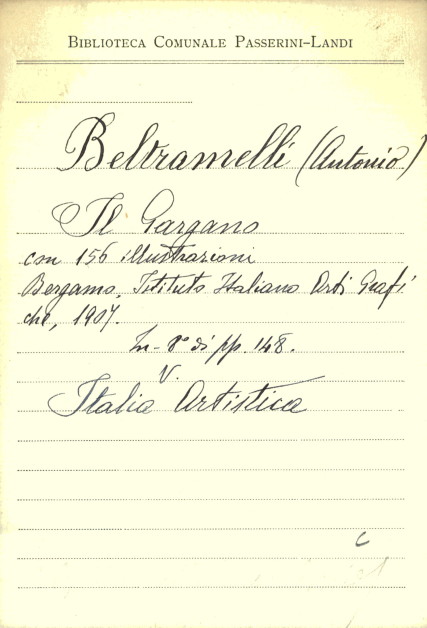 BIBLIOTECA COMUNALE PASSERINI-LANDI
Beltramelli (Antonio)
Il Gargano
con 156 illustrazioni
Bergamo, Istituto Italiano Arti Grafi
che, 1907.
In-8° di pp. 148.
V.
Italia Artistica
C